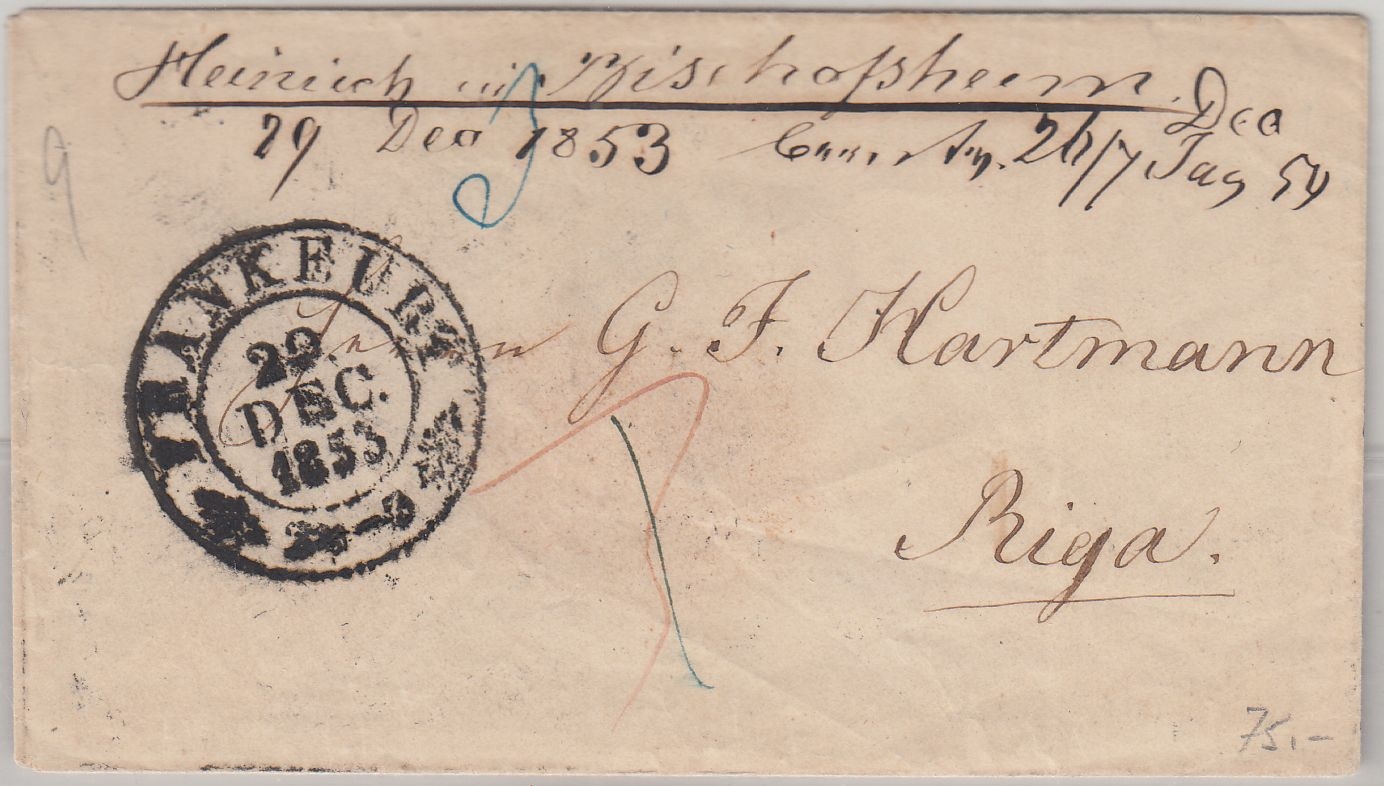 Heinrich in Bischofsheim
29 Dec 1853 26/7 Dec
Jan 54
9
FRANKFURT
29
DEC.
1853
2-3
Herrn G. F. Hartmann
Riga.
75.-